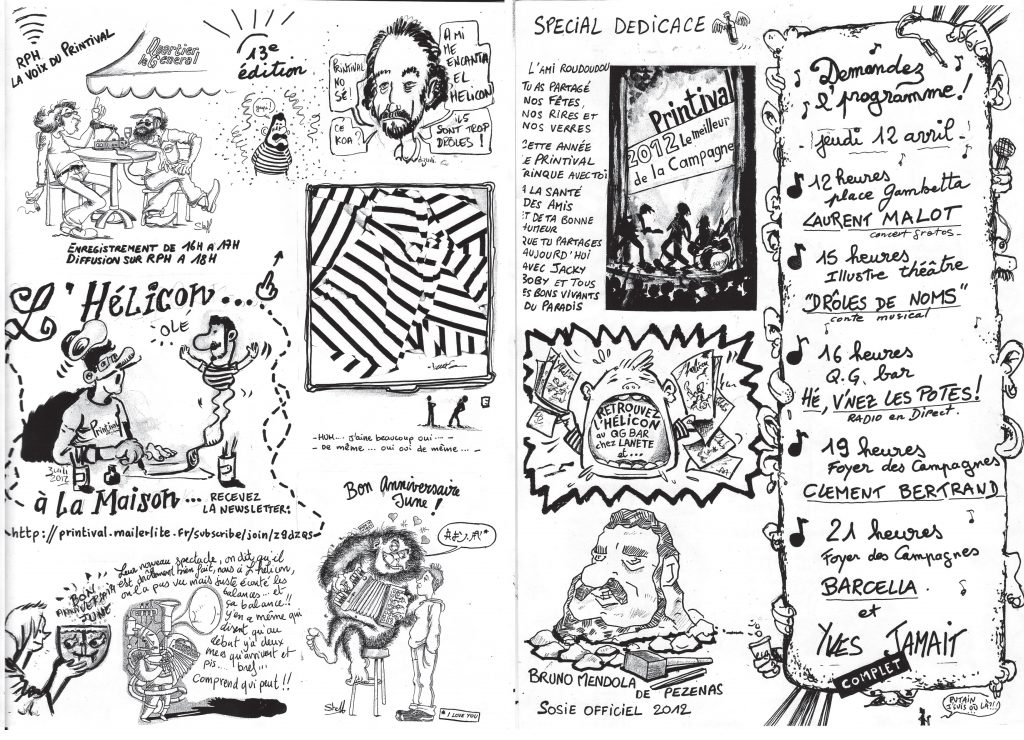 RPH
LA VOIX DU PRINTIVAL
Quartier
Général
13e
édition
PRINTIVAL
NO
SÉ!
A MI
ME
ENCANTA
EL
HELICON
CE
KOA?
ILS
SONT TROP
DRÔLES!
Sheff
ENREGISTREMENT DE 16H À 17H
DIFFUSION SUR RPH À 18H
L'Hélicon...
OLÉ
Printival
2012
à La Maison...
RECEVEZ
LA NEWSLETTER:
http://printival.mailerlite.fr/subscribe/join/z9dzqs
- HUM... j'aime beaucoup oui... -
- De même... oui oui de même... -
Bon Anniversaire
June!
BON
ANNIVERSAIRE
JUNE
Leur nouveau spectacle, on dit qu'il
est drôlement bien fait, nous à l'hélicon,
on l'a pas vu mais juste écouté les
balances... et
ça balance!!
Y'en a même qui
disent qu'au
début y'a deux
mecs qu'arrivent et
pis.... bref...
Comprend qui peut!!
Sheff
* I LOVE YOU
SPECIAL DEDICACE
L'AMI ROUDOUDOU
TU AS PARTAGÉ
NOS FÊTES,
NOS RIRES ET
NOS VERRES
CETTE ANNÉE
LE PRINTIVAL
TRINQUE AVEC TOI
À LA SANTÉ
DES AMIS
ET DE TA BONNE
HUMEUR
QUE TU PARTAGES
AUJOURD'HUI
AVEC JACKY
BOBY ET TOUS
LES BONS VIVANTS
DU PARADIS
Printival
2012 Le meilleur
de la Campagne
RETROUVEZ
L'HÉLICON
AU QG BAR
chez LANETE
et...
BRUNO MENDOLA
DE PEZENAS
SOSIE OFFICIEL 2012
Demandez
l'programme!
jeudi 12 avril
12 heures
place Gambetta
LAURENT MALOT
concert gratos
15 heures
Illustre théâtre
"DRÔLES DE NOMS"
conte musical
16 heures
Q.G. bar
HÉ, V'NEZ LES POTES!
RADIO en DIRECT.
19 heures
Foyer des Campagnes
CLEMENT BERTRAND
21 heures
Foyer des Campagnes
BARCELLA
et
YVES JAMAIT
COMPLET
PUTAIN
J'SUIS OÙ LÀ?!!